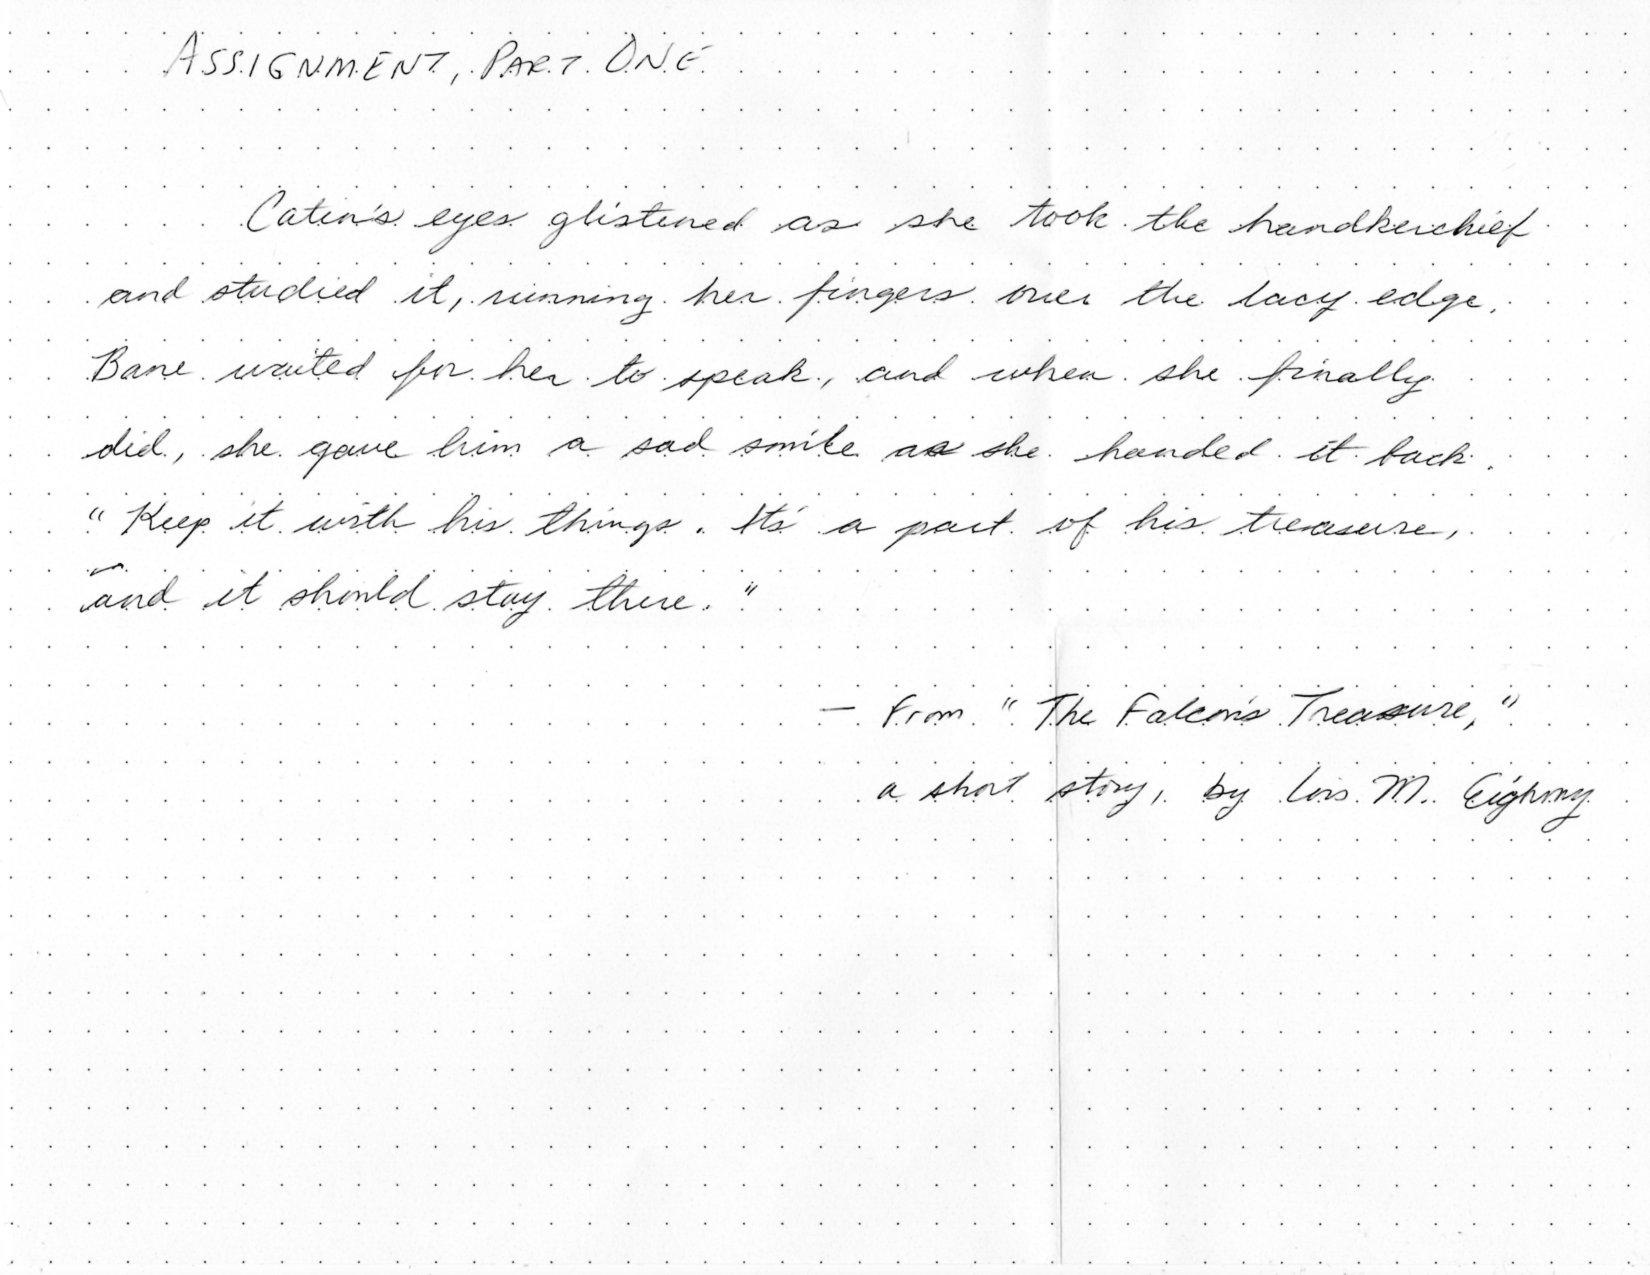 ASSIGNMENT, PART ONE
Catin's eyes glistened as she took the handkerchief
and studied it, running her fingers over the lacy edge.
Bane waited for her to speak, and when she finally
did, she gave him a sad smile as she handed it back.
"Keep it with his things. It's a part of his treasure,
and it should stay there."
— From "The Falcon's Treasure,"
a short story, by Lois M. Eighmy